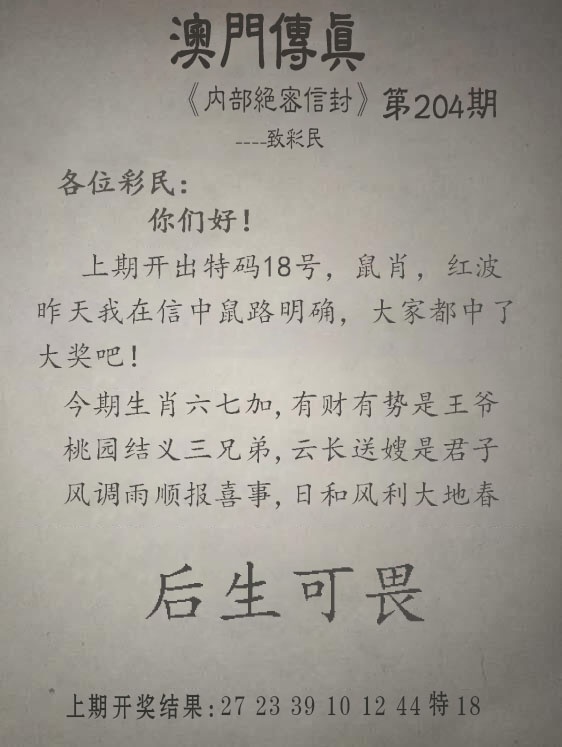 澳門傳眞
《内部絕密信封》第204期
----致彩民
各位彩民:
你们好!
上期开出特码18号，鼠肖，红波
昨天我在信中鼠路明确，大家都中了
大奖吧!
今期生肖六七加,有财有势是王爷
桃园结义三兄弟,云长送嫂是君子
风调雨顺报喜事,日和风利大地春
后生可畏
上期开奖结果:27 23 39 10 12 44特18